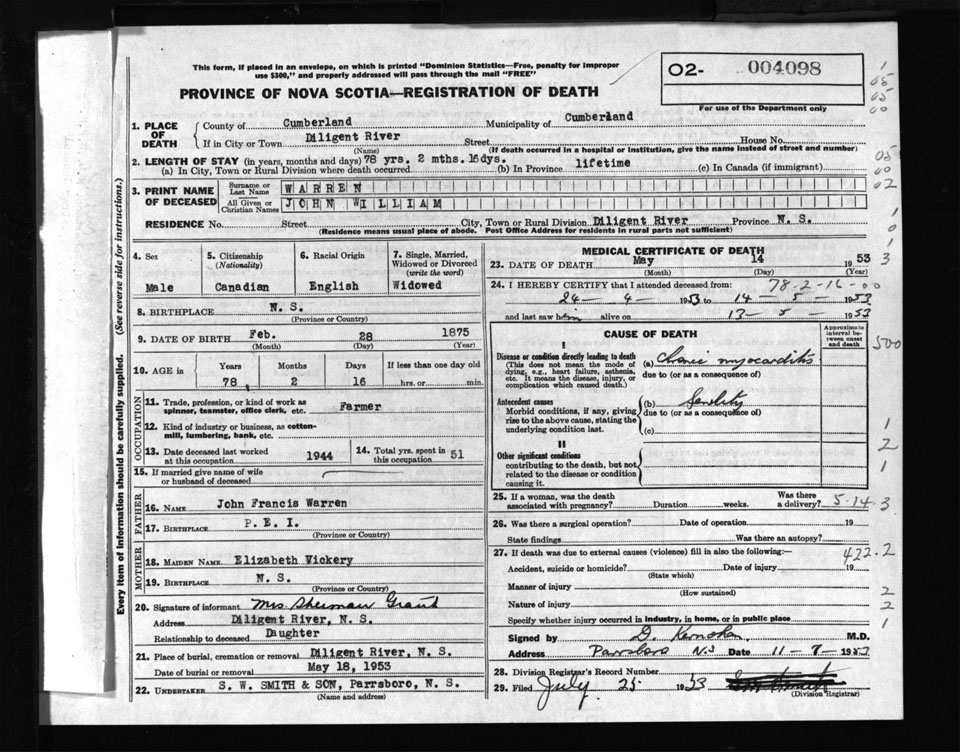 This form, if placed in an envelope, on which is printed "Dominion Statistics—Free, penalty for improper
use $300," and properly addressed will pass through the mail "FREE"
02- 004098
For use of the Department only
PROVINCE OF NOVA SCOTIA—REGISTRATION OF DEATH
1. PLACE OF DEATH
County of Cumberland Municipality of Cumberland
If in City or Town Diligent River Street House No.
(Name) (If death occurred in a hospital or institution, give the name instead of street and number)
2. LENGTH OF STAY (in years, months and days) 78 yrs. 2 mths. 16dys. lifetime
(a) In City, Town or Rural Division where death occurred (b) In Province (c) In Canada (if immigrant)
3. PRINT NAME OF DECEASED
Surname or Last Name WARREN
All Given or Christian Names JOHN WILLIAM
RESIDENCE No. Street City, Town or Rural Division Diligent River Province N. S.
(Residence means usual place of abode. Post Office Address for residents in rural parts not sufficient)
4. Sex
Male
5. Citizenship
(Nationality)
Canadian
6. Racial Origin
English
7. Single, Married, Widowed or Divorced
(write the word)
Widowed
8. BIRTHPLACE N. S.
(Province or Country)
9. DATE OF BIRTH Feb. 28 1875
(Month) (Day) (Year)
10. AGE in Years Months Days If less than one day old
78 2 16 hrs. or min.
OCCUPATION
11. Trade, profession, or kind of work as
spinner, teamster, office clerk, etc. Farmer
12. Kind of industry or business, as cotton-
mill, lumbering, bank, etc.
13. Date deceased last worked
at this occupation 1944
14. Total yrs. spent in
this occupation 51
15. If married give name of wife
or husband of deceased
FATHER
16. NAME John Francis Warren
17. BIRTHPLACE P. E. I.
(Province or Country)
MOTHER
18. MAIDEN NAME Elizabeth Vickery
19. BIRTHPLACE N. S.
(Province or Country)
20. Signature of informant Mrs Sherman Grant
Address Diligent River, N. S.
Relationship to deceased Daughter
21. Place of burial, cremation or removal Diligent River, N. S.
Date of burial or removal May 18, 1953
22. UNDERTAKER S. W. SMITH & SON, Parrsboro, N. S.
(Name and address)
MEDICAL CERTIFICATE OF DEATH
23. DATE OF DEATH May 14 1953
(Month) (Day) (Year)
24. I HEREBY CERTIFY that I attended deceased from: 78-2-16-00
24 - 4 - 1953 to 14 - 5 - 1953
and last saw him alive on 13 - 5 - 1953
CAUSE OF DEATH
Approximate interval between onset and death
I
Disease or condition directly leading to death
(This does not mean the mode of
dying, e.g., heart failure, asthenia,
etc. It means the disease, injury, or
complication which caused death.)
(a) Chronic myocarditis
due to (or as a consequence of)
Antecedent causes
Morbid conditions, if any, giving
rise to the above cause, stating the
underlying condition last.
(b) Senility
due to (or as a consequence of)
(c)
II
Other significant conditions
contributing to the death, but not
related to the disease or condition
causing it.
25. If a woman, was the death
associated with pregnancy? Duration weeks. Was there
a delivery? 5-14-3
26. Was there a surgical operation? Date of operation 19
State findings Was there an autopsy?
27. If death was due to external causes (violence) fill in also the following:— 422.2
Accident, suicide or homicide? Date of injury 19
(State which)
Manner of injury
(How sustained)
Nature of injury
Specify whether injury occurred in industry, in home, or in public place
Signed by D. M.D.
Address Parrsboro N.S Date 11 - 7 - 1953
28. Division Registrar's Record Number
29. Filed July 25 1953
(Division Registrar)
(See reverse side for instructions.)
Every item of information should be carefully supplied.
500